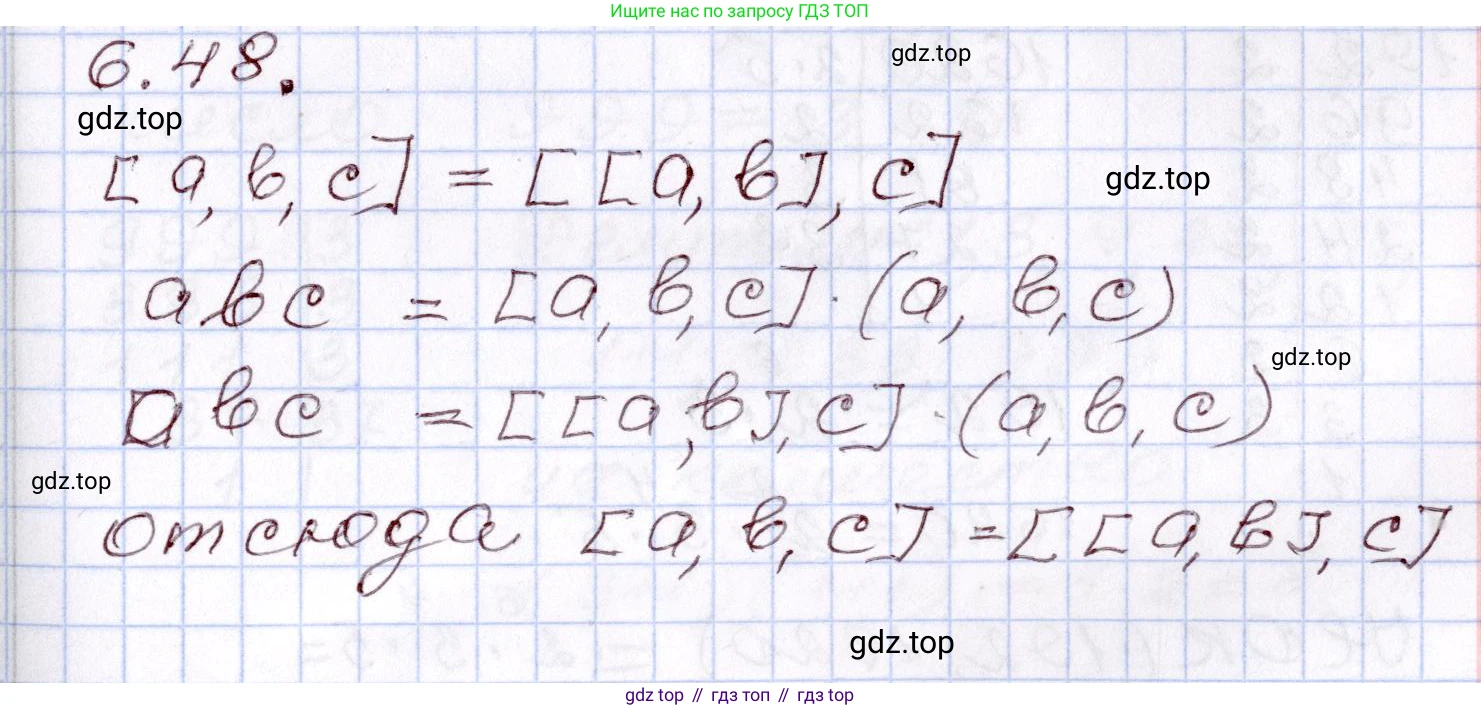 Ищите нас по запросу ГДЗ ТОП
6.48.
gdz.top
gdz.top
[a, в, c] = [[a, в], c]
gdz.top
aвc = [a, в, c] · (a, в, c)
gdz.top
aвc = [[a, в], c] · (a, в, c)
gdz.top
отсюда [a, в, c] = [[a, в], c]
gdz.top
gdz.top // гдз топ // гдз top